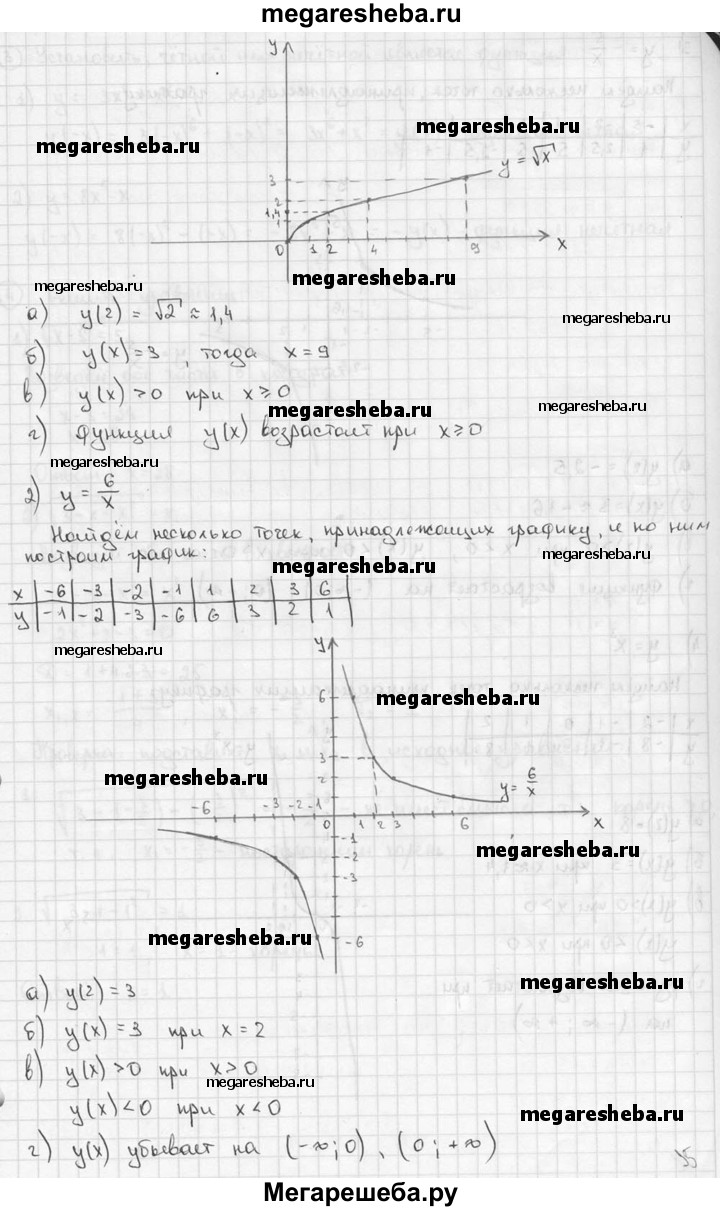 megaresheba.ru
y
megaresheba.ru
megaresheba.ru
y = √x
3
2
1,4
1
0 1 2 4 9 x
megaresheba.ru
megaresheba.ru
а) y(2) = √2 ≈ 1,4
б) y(x) = 3 , тогда x = 9
в) y(x) > 0 при x ≥ 0
megaresheba.ru
megaresheba.ru
г) Функция y(x) возрастает при x ≥ 0
megaresheba.ru
2) y = 6/x
Найдём несколько точек, принадлежащих графику, и по ним
построим график:
megaresheba.ru
x | -6 | -3 | -2 | -1 | 1 | 2 | 3 | 6
y | -1 | -2 | -3 | -6 | 6 | 3 | 2 | 1
megaresheba.ru
y
6
megaresheba.ru
3
2
megaresheba.ru
y = 6/x
-6 -3 -2 -1 0 1 2 3 6 x
-1
-2
-3
megaresheba.ru
megaresheba.ru
-6
а) y(2) = 3
megaresheba.ru
б) y(x) = 3 при x = 2
в) y(x) > 0 при x > 0
megaresheba.ru
y(x) < 0 при x < 0
megaresheba.ru
г) y(x) убывает на (-∞; 0), (0; +∞)
Мегарешеба.ру